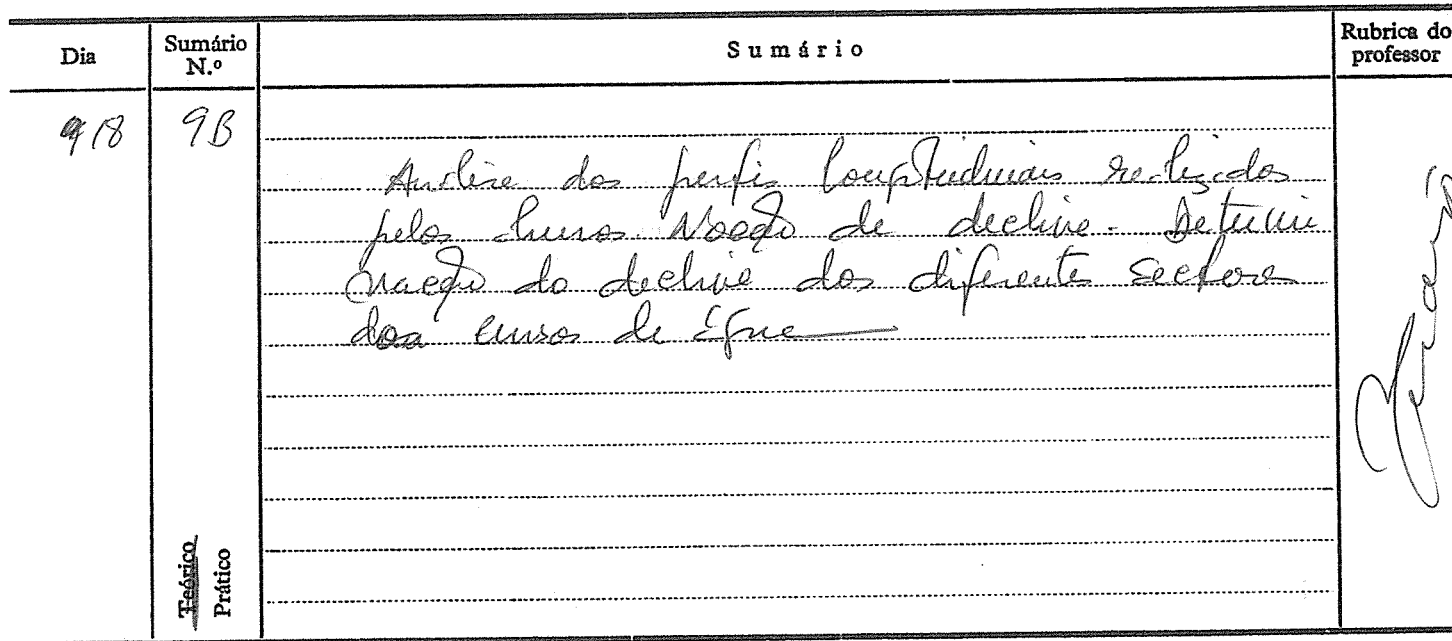 Dia
Sumário N.º
Sumário
Rubrica do professor
9B
Análise dos perfis longitudinais realizados
pelos alunos. Noção de declive. Determi
nação do declive dos diferentes sectores
dos cursos de água
Teórico
Prático